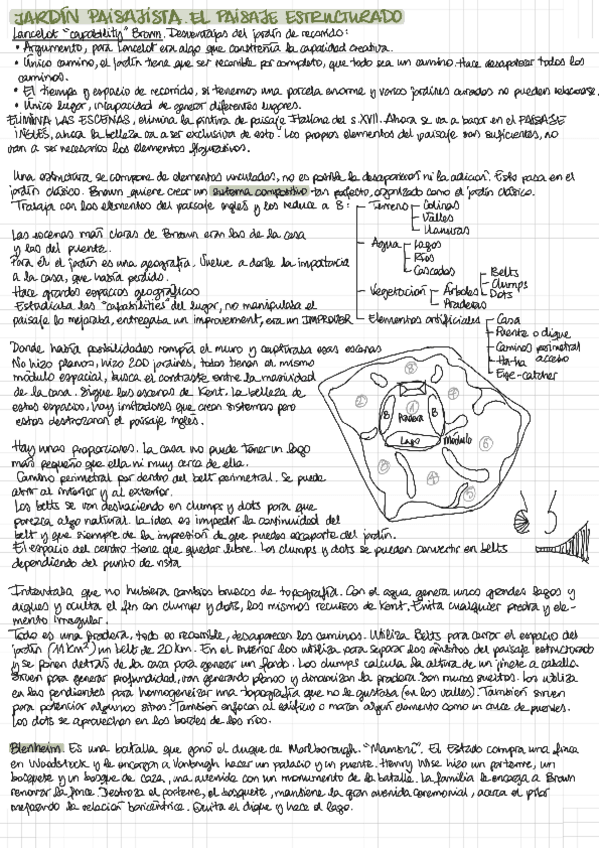 JARDÍN PAISAJISTA. EL PAISAJE ESTRUCTURADO
Lancelot "capability" Brown. Desventajas del jardín de recorrido:
• Argumento, para Lancelot era algo que constreñía la capacidad creativa.
• Único camino, el jardín tiene que ser recorrible por completo, que todo sea un camino. Hace desaparecer todos los
caminos.
• El tiempo y espacio de recorrido, si tenemos una parcela enorme y varios jardines aunados no pueden relacionarse.
• Único lugar, incapacidad de generar diferentes lugares.
ELIMINA LAS ESCENAS, elimina la pintura de paisaje Italiana del s. XVII. Ahora se va a basar en el PAISAJE
INGLÉS, ahora la belleza va a ser exclusiva de esto. Los propios elementos del paisaje son suficientes, no
van a ser necesarios los elementos figurativos.
Una estructura se compone de elementos vinculados, no es posible la desaparición ni la adición. Esto pasa en el
jardín clásico. Brown quiere crear un sistema compositivo tan perfecto, organizado como el jardín clásico.
Trabaja con los elementos del paisaje inglés y los reduce a 8:
Terreno
Colinas
Valles
Llanuras
Agua
Lagos
Ríos
Cascadas
Vegetación
Árboles
Belts
Clumps
Dots
Praderas
Elementos artificiales
Casa
Puente o dique
Camino perimetral
acceso
Ha-ha
Eye-catcher
Las escenas más claras de Brown eran las de la casa
y las del puente.
Para él el jardín es una geografía. Vuelve a darle la importancia
a la casa, que había perdido.
Hace grandes espacios geográficos
Estudiaba las "capabilities" del lugar, no manipulaba el
paisaje lo mejoraba, entregaba un improvement, era un IMPROVER
Donde había posibilidades rompía el muro y capturaba esas escenas
No hizo planos, hizo 200 jardines, todos tienen el mismo
módulo espacial, busca el contraste entre la masividad
de la casa. Sigue las escenas de Kent. La belleza de
estos espacios, hay imitadores que crean sistemas pero
estos destrozaron el paisaje inglés.
Hay unas proporciones. La casa no puede tener un lago
más pequeño que ella ni muy cerca de ella.
Camino perimetral por dentro del belt perimetral. Se puede
abrir al interior y al exterior.
Los belts se van deshaciendo en clumps y dots para que
parezca algo natural. La idea es impedir la continuidad del
belt y que siempre de la impresión de que puedas escaparte del jardín.
El espacio del centro tiene que quedar libre. Los clumps y dots se pueden convertir en belts
dependiendo del punto de vista.
Pradera
B
B
Lago
Módulo
Intentaba que no hubiera cambios bruscos de topografía. Con el agua genera unos grandes lagos y
diques y oculta el fin con clumps y dots, los mismos recursos de Kent. Evita cualquier piedra y ele-
mento irregular.
Todo es una pradera, todo es recorrible, desaparecen los caminos. Utiliza Belts para cerrar el espacio del
jardín (11 km²) un belt de 20 km. En el interior los utiliza para separar los ámbitos del paisaje estructurado
y se ponen detrás de la casa para generar un fondo. Los clumps calcula la altura de un jinete a caballo
sirven para generar profundidad, van generando planos y dinamizan la pradera. Son muros sueltos. Los utiliza
en las pendientes para homogeneizar una topografía que no le gustaba (en los valles). También sirven
para potenciar algunos sitios. También enfocan al edificio o marcan algún elemento como un cruce de puentes.
Los dots se aprovechan en los bordes de los ríos.
Blenheim. Es una batalla que ganó el duque de Marlborough. "Mambrú". El Estado compra una finca
en Woodstock y le encarga a Vanbrugh hacer un palacio y un puente. Henry Wise hizo un parterre, un
bosquete y un bosque de caza, una avenida con un monumento de la batalla. La familia le encarga a Brown
renovar la finca. Destroza el parterre, el bosquete, mantiene la gran avenida ceremonial, acerca el pilar
mejorando la relación baricéntrica. Quita el dique y hace el lago.